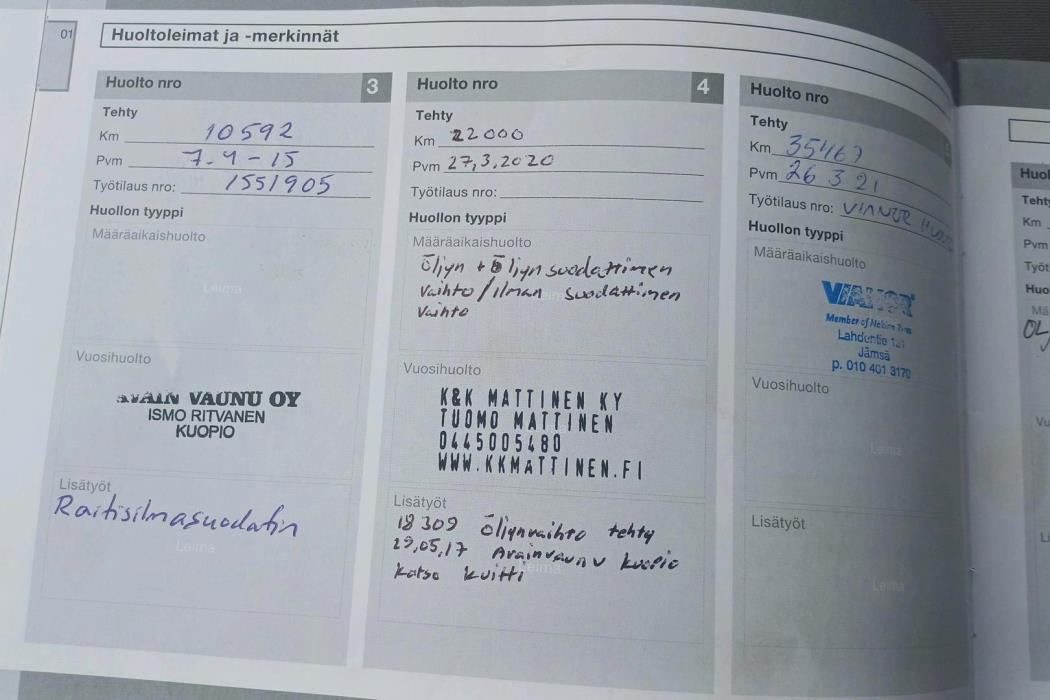 01
Huoltoleimat ja -merkinnät
Huolto nro 3
Tehty
Km 10592
Pvm 7.4-15
Työtilaus nro: 1551905
Huollon tyyppi
Määräaikaishuolto
Leima
Vuosihuolto
AVAIN VAUNU OY
ISMO RITVANEN
KUOPIO
Lisätyöt
Raitisilmasuodatin
Leima
Huolto nro 4
Tehty
Km 22000
Pvm 27,3,2020
Työtilaus nro:
Huollon tyyppi
Määräaikaishuolto
Öljyn + Öljynsuodattimen
vaihto / ilman suodattimen
vaihto
Vuosihuolto
K&K MATTINEN KY
TUOMO MATTINEN
0445005480
WWW.KKMATTINEN.FI
Lisätyöt
18 309 Öljynvaihto tehty
29,05,17 Avainvaunu Kuopio
katso kuitti
Leima
Huolto nro
Tehty
Km 35467
Pvm 26 3 21
Työtilaus nro: VIANOR
Huollon tyyppi
Määräaikaishuolto
VIANOR
Member of Nokian Tyres
Lahdentie
Jämsä
p. 010 401 3170
Vuosihuolto
Leima
Lisätyöt
Leima
Km
Pvm